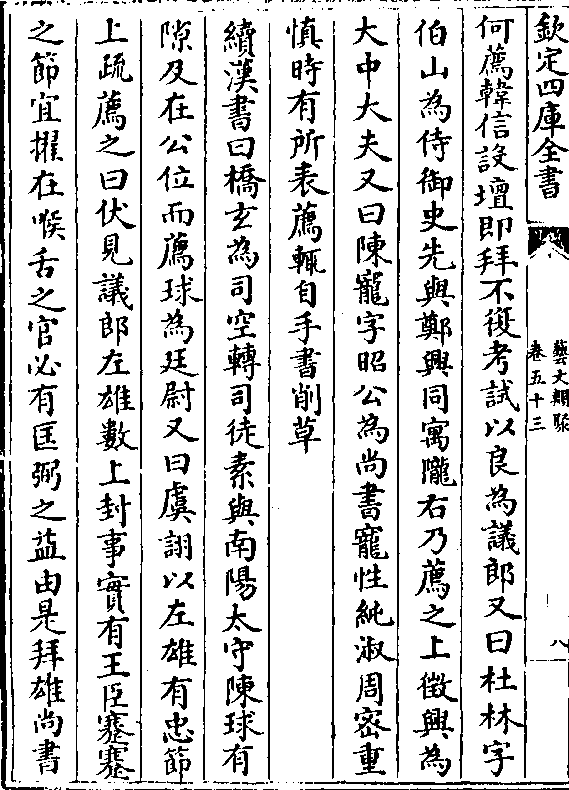 欽定四庫全書
藝文類聚
卷五十三
八
何薦韓信設壇即拜不復考試以良為議郎又曰杜林字
伯山為侍御史先與鄭興同寓隴右乃薦之上徵興為
大中大夫又曰陳寵字昭公為尚書寵性純淑周密重
慎時有所表薦輒自手書削草
續漢書曰橋玄為司空轉司徒素與南陽太守陳球有
隙及在公位而薦球為廷尉又曰虞詡以左雄有忠節
上疏薦之曰伏見議郎左雄數上封事實有王臣蹇蹇
之節宜擢在喉舌之官必有匡弼之益由是拜雄尚書